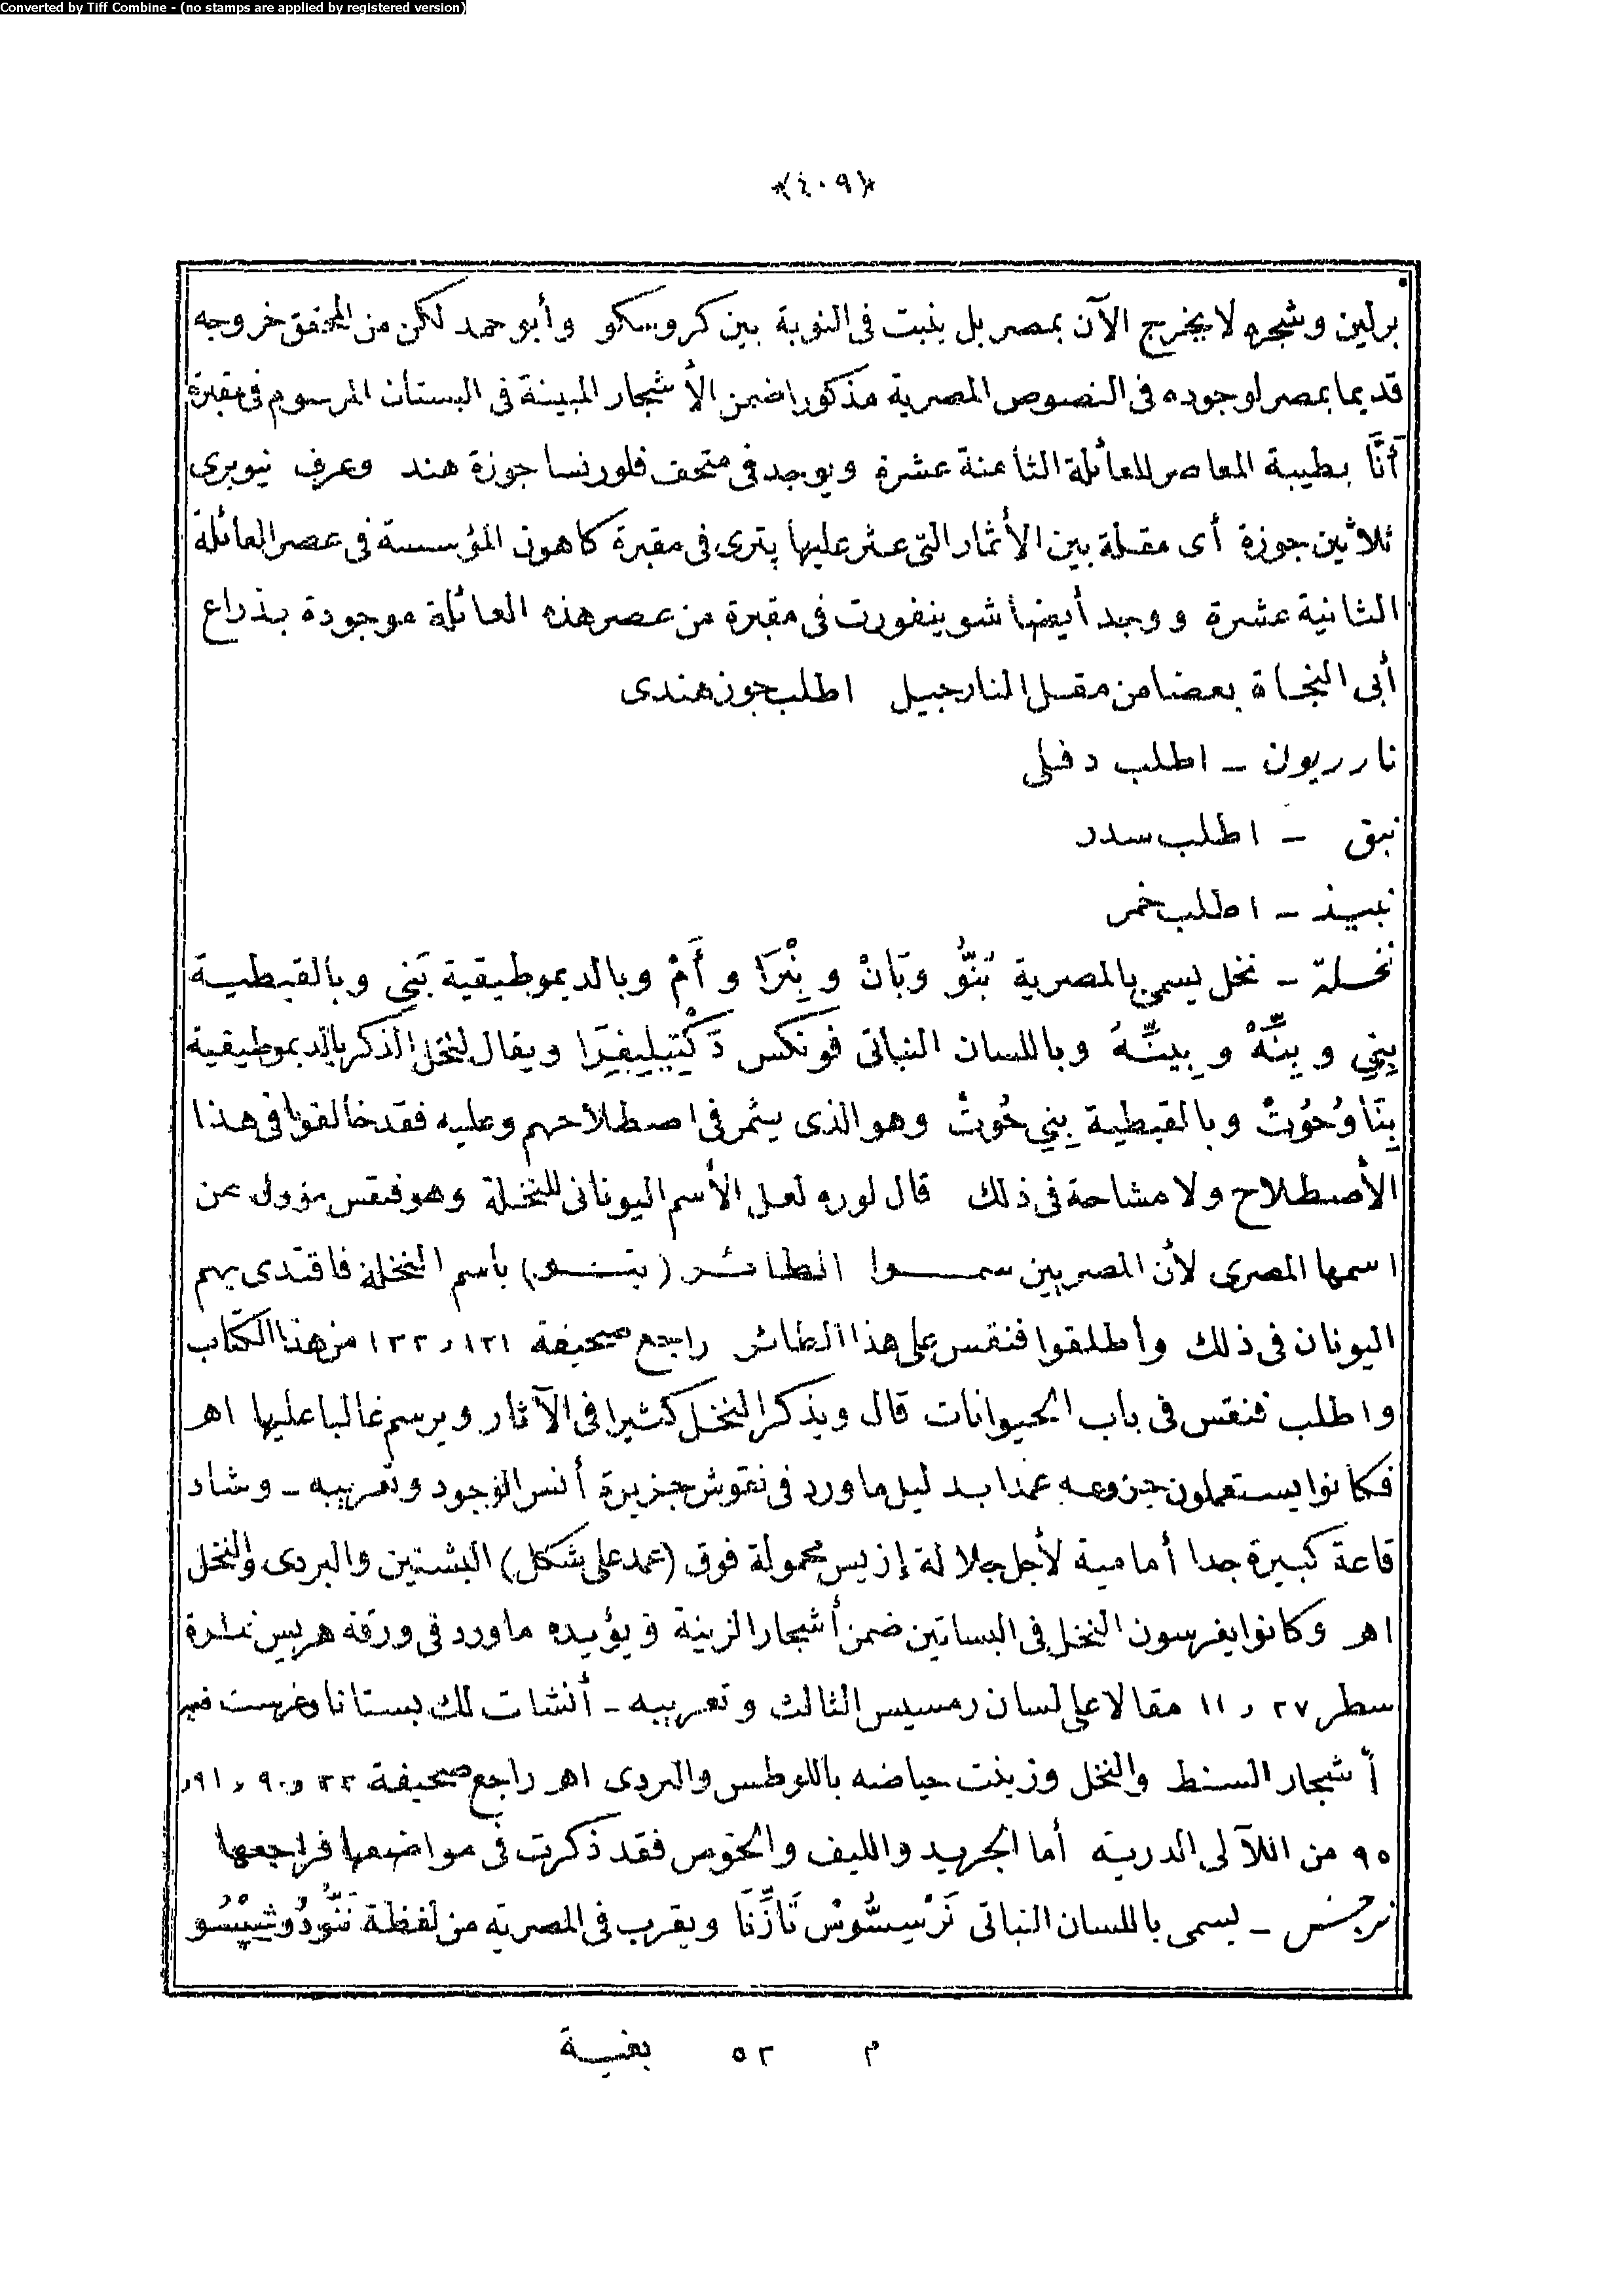 Converted by Tiff Combine - (no stamps are applied by registered version)
﴿٤٠٩﴾
برلين وشجره لا يخرج الآن بمصر بل ينبت فى النوبة بين كروسكو وأبو حمد لكن من المحقق خروجه
قديما بمصر لوجوده فى النصوص المصرية مذكورا ضمن الأشجار المبينة فى البستان المرسوم فى مقبرة
أَنَّا بطيبة المعاصر للعائلة الثامنة عشرة ويوجد فى متحف فلورنسا جوزة هند وعرف نيوبرى
ثلاثين جوزة أى مقلة بين الأثمار التى عثر عليها پترى فى مقبرة كاهون المؤسسة فى عصر العائلة
الثانية عشرة ووجد أيضا شوينفورت فى مقبرة من عصر هذه العائلة موجودة بذراع
أبى النجاة بعضا من مقل النارجيل اطلب جوز هندى
نارريون ـ اطلب دفلى
نبق ـ اطلب سدر
نبيذ ـ اطلب خمر
نخلة ـ نخل يسمى بالمصرية بُنُّو وبَانْ وبِنْرَا وأَمْ وبالديموطيقية بَنِي وبالقبطية
بِنِي وبِنِّهْ وبِينِّهْ وباللسان النباتى فونكس دَكْتِيلِيفِرَا ويقال لنخل الذكر بالديموطيقية
بِنَاوُحُوتْ وبالقبطية بِنِي حُوتْ وهو الذى يثمر فى اصطلاحهم وعليه فقد خالفوا فى هذا
الأصطلاح ولا مشاحة فى ذلك قال لوره لعل الأسم اليونانى للنخلة وهو فنقس مؤول عن
اسمها المصرى لأن المصريين سموا الطائر (بنو) بأسم النخلة فاقتدى بهم
اليونان فى ذلك وأطلقوا فنقس على هذا الطائر راجع صحيفة ١٢١ ر ١٢٢ من هذا الكتاب
واطلب فنقس فى باب الحيوانات قال ويذكر النخل كثيرا فى الآثار ويرسم غالبا عليها اهـ
فكانوا يستعملون جزوعه عمدا بدليل ما ورد فى نقوش جزيرة أنس الوجود وتعريبه ـ وشاد
قاعة كبيرة جدا أمامية لأجل جلالة إزيس محمولة فوق (عمد على شكل) البشنين والبردى والنخل
اهـ وكانوا يغرسون النخل فى البساتين ضمن أشجار الزينة ويؤيده ما ورد فى ورقة هريس نمرة
سطر ٢٧ ر ١١ مقالا على لسان رمسيس الثالث وتعريبه ـ أنشات لك بستانا وغرست فيه
أشجار السنط والنخل وزينت حياضه باللوطس والبردى اهـ راجع صحيفة ٣٣ ر ٩٠ ر ٩١ ر
٩٥ من اللآلى الدرية أما الجريد والليف والخوص فقد ذكرت فى مواضعها فراجعها
نرجس ـ يسمى باللسان النباتى نَرْسِسُّوسْ تَازِّتَا ويقرب فى المصرية من لفظة
م ٥٢ بغية